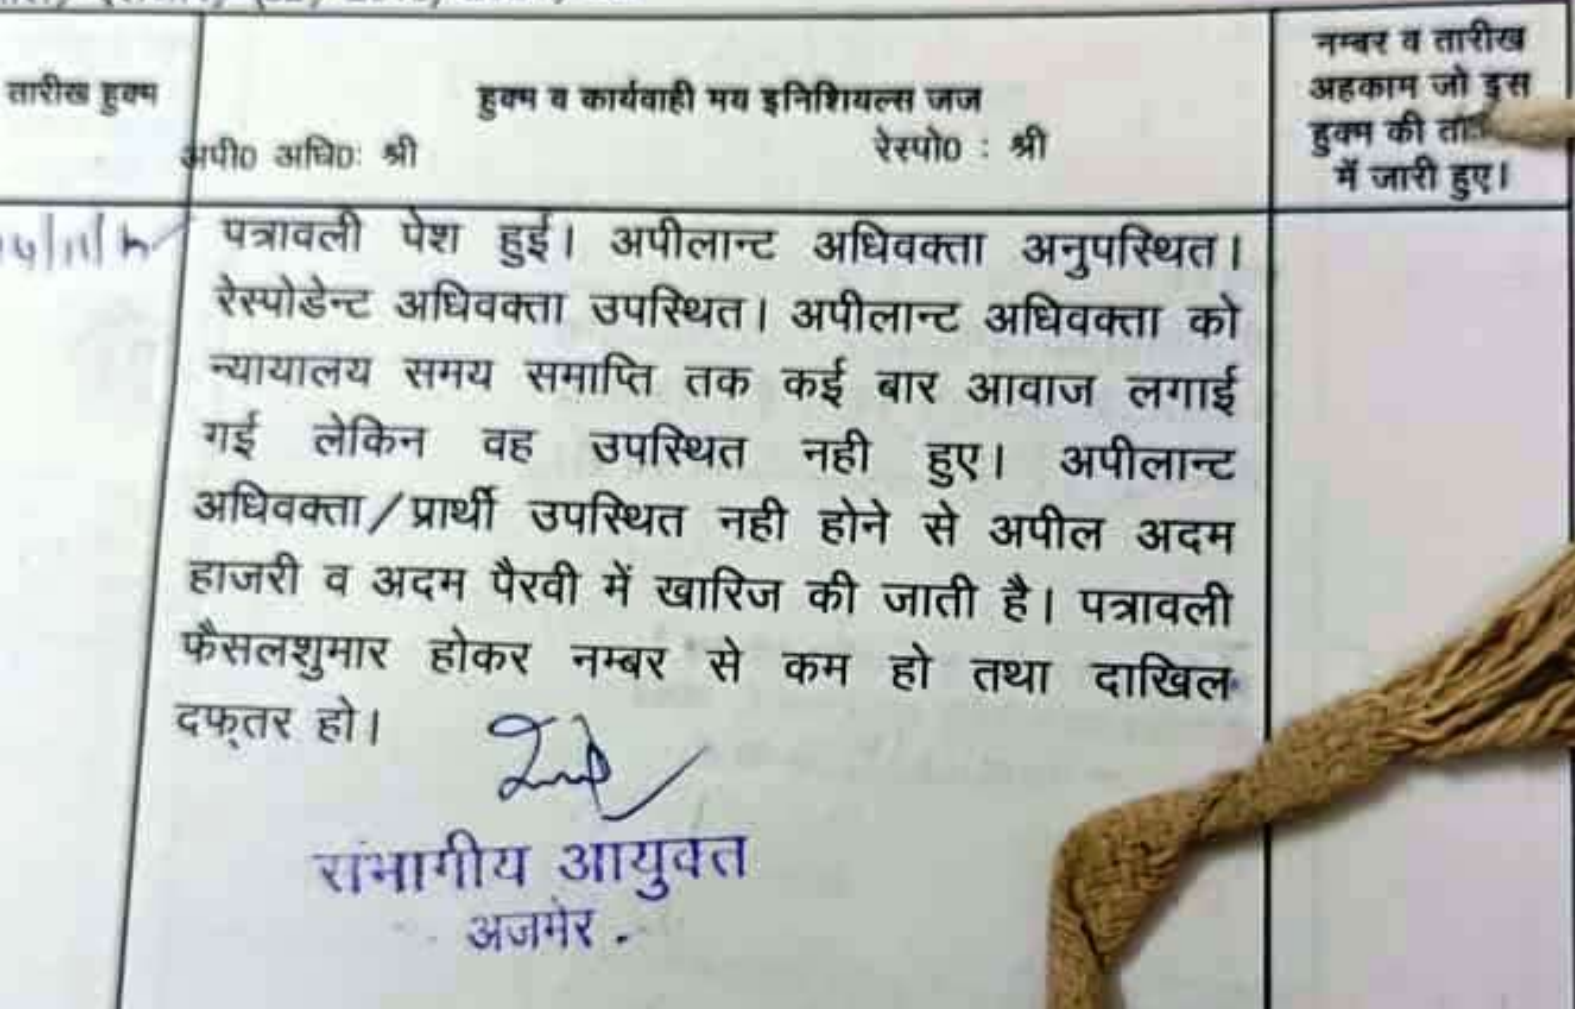 तारीख हुक्म
हुक्म व कार्यवाही मय इनिशियल्स जज
अपी0 अधि0: श्री रेस्पो0 : श्री
नम्बर व तारीख
अहकाम जो इस
हुक्म की
में जारी हुए।
पत्रावली पेश हुई। अपीलान्ट अधिवक्ता अनुपस्थित।
रेस्पोडेन्ट अधिवक्ता उपस्थित। अपीलान्ट अधिवक्ता को
न्यायालय समय समाप्ति तक कई बार आवाज लगाई
गई लेकिन वह उपस्थित नही हुए। अपीलान्ट
अधिवक्ता/प्रार्थी उपस्थित नही होने से अपील अदम
हाजरी व अदम पैरवी में खारिज की जाती है। पत्रावली
फैसलशुमार होकर नम्बर से कम हो तथा दाखिल
दफ्तर हो।
संभागीय आयुक्त
अजमेर